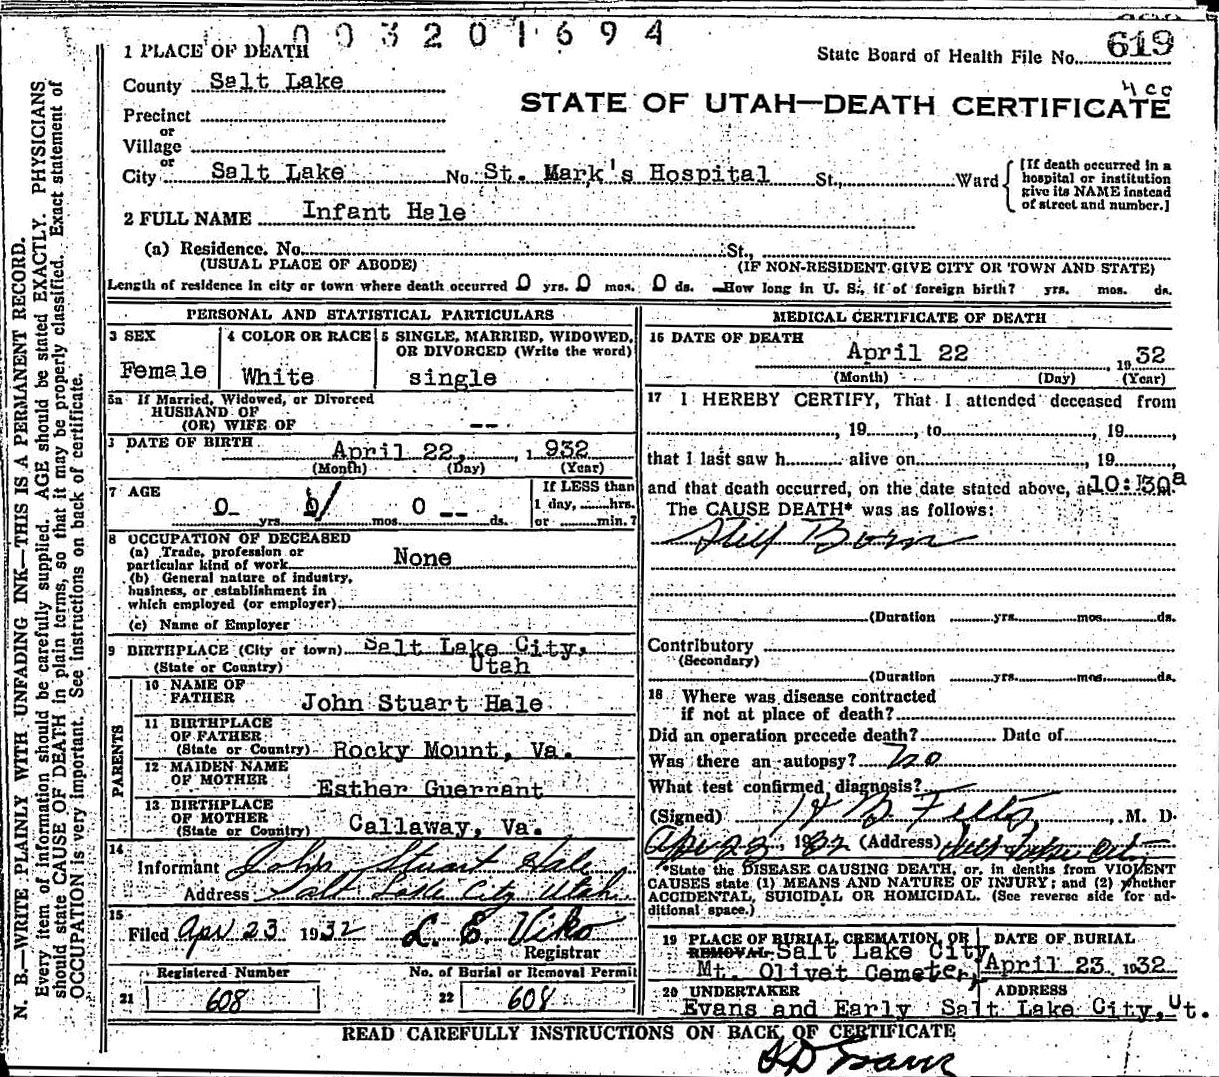 1003201694
1 PLACE OF DEATH
State Board of Health File No. 619
County Salt Lake
400
STATE OF UTAH—DEATH CERTIFICATE
Precinct
or
Village
or
City Salt Lake No. St. Mark's Hospital St., Ward
[If death occurred in a
hospital or institution
give its NAME instead
of street and number.]
2 FULL NAME Infant Hale
(a) Residence. No. St.,
(USUAL PLACE OF ABODE) (IF NON-RESIDENT GIVE CITY OR TOWN AND STATE)
Length of residence in city or town where death occurred 0 yrs. 0 mos. 0 ds. —How long in U. S., if of foreign birth? yrs. mos. ds.
PERSONAL AND STATISTICAL PARTICULARS
3 SEX
Female
4 COLOR OR RACE
White
5 SINGLE, MARRIED, WIDOWED,
OR DIVORCED (Write the word)
single
5a If Married, Widowed, or Divorced
HUSBAND OF
(OR) WIFE OF --
DATE OF BIRTH
April 22, 1932
(Month) (Day) (Year)
7 AGE
0 yrs. mos. 0 -- ds.
If LESS than
1 day, hrs.
or min.?
8 OCCUPATION OF DECEASED
(a) Trade, profession or
particular kind of work None
(b) General nature of industry,
business, or establishment in
which employed (or employer)
(c) Name of Employer
9 BIRTHPLACE (City or town) Salt Lake City,
(State or Country) Utah
PARENTS
10 NAME OF
FATHER John Stuart Hale
11 BIRTHPLACE
OF FATHER
(State or Country) Rocky Mount, Va.
12 MAIDEN NAME
OF MOTHER Esther Guerrant
13 BIRTHPLACE
OF MOTHER
(State or Country) Callaway, Va.
14
Informant John Stuart Hale
Address Salt Lake City Utah.
15
Filed Apr 23 1932 L. E. Viko
Registrar
Registered Number
21 608
No. of Burial or Removal Permit
22 608
MEDICAL CERTIFICATE OF DEATH
16 DATE OF DEATH
April 22, 1932
(Month) (Day) (Year)
17 I HEREBY CERTIFY, That I attended deceased from
, 19 , to , 19 ,
that I last saw h alive on , 19 ,
and that death occurred, on the date stated above, at 10:30 a m.
The CAUSE DEATH* was as follows:
Still Born
(Duration yrs. mos. ds.
Contributory
(Secondary)
(Duration yrs. mos. ds.
18 Where was disease contracted
if not at place of death?
Did an operation precede death? Date of
Was there an autopsy? no
What test confirmed diagnosis?
(Signed) , M. D.
Apr 23, 1932 (Address) Salt Lake City
*State the DISEASE CAUSING DEATH, or, in deaths from VIOLENT
CAUSES state (1) MEANS AND NATURE OF INJURY; and (2) whether
ACCIDENTAL, SUICIDAL OR HOMICIDAL. (See reverse side for ad-
ditional space.)
19 PLACE OF BURIAL, CREMATION, OR
REMOVAL Salt Lake City
Mt. Olivet Cemetery,
DATE OF BURIAL
April 23, 1932
20 UNDERTAKER ADDRESS
Evans and Early Salt Lake City, Ut.
READ CAREFULLY INSTRUCTIONS ON BACK OF CERTIFICATE
N. B.—WRITE PLAINLY WITH UNFADING INK—THIS IS A PERMANENT RECORD.
Every item of information should be carefully supplied. AGE should be stated EXACTLY. PHYSICIANS
should state CAUSE OF DEATH in plain terms, so that it may be properly classified. Exact statement of
OCCUPATION is very important. See instructions on back of certificate.